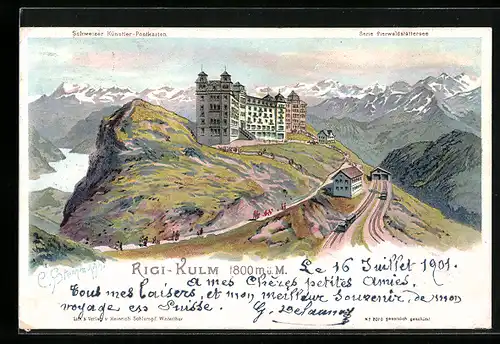 Schweizer Künstler-Postkarten
Serie Vierwaldstättersee
RIGI-KULM 1800 m ü. M.
Le 16 Juillet 1901.
A mes Chères petites Amies,
Tous mes baisers, et mon meilleur Souvenir, de mon
voyage en Suisse.
Lith. & Verlag v. Heinrich Schlumpf, Winterthur
gesetzlich geschützt